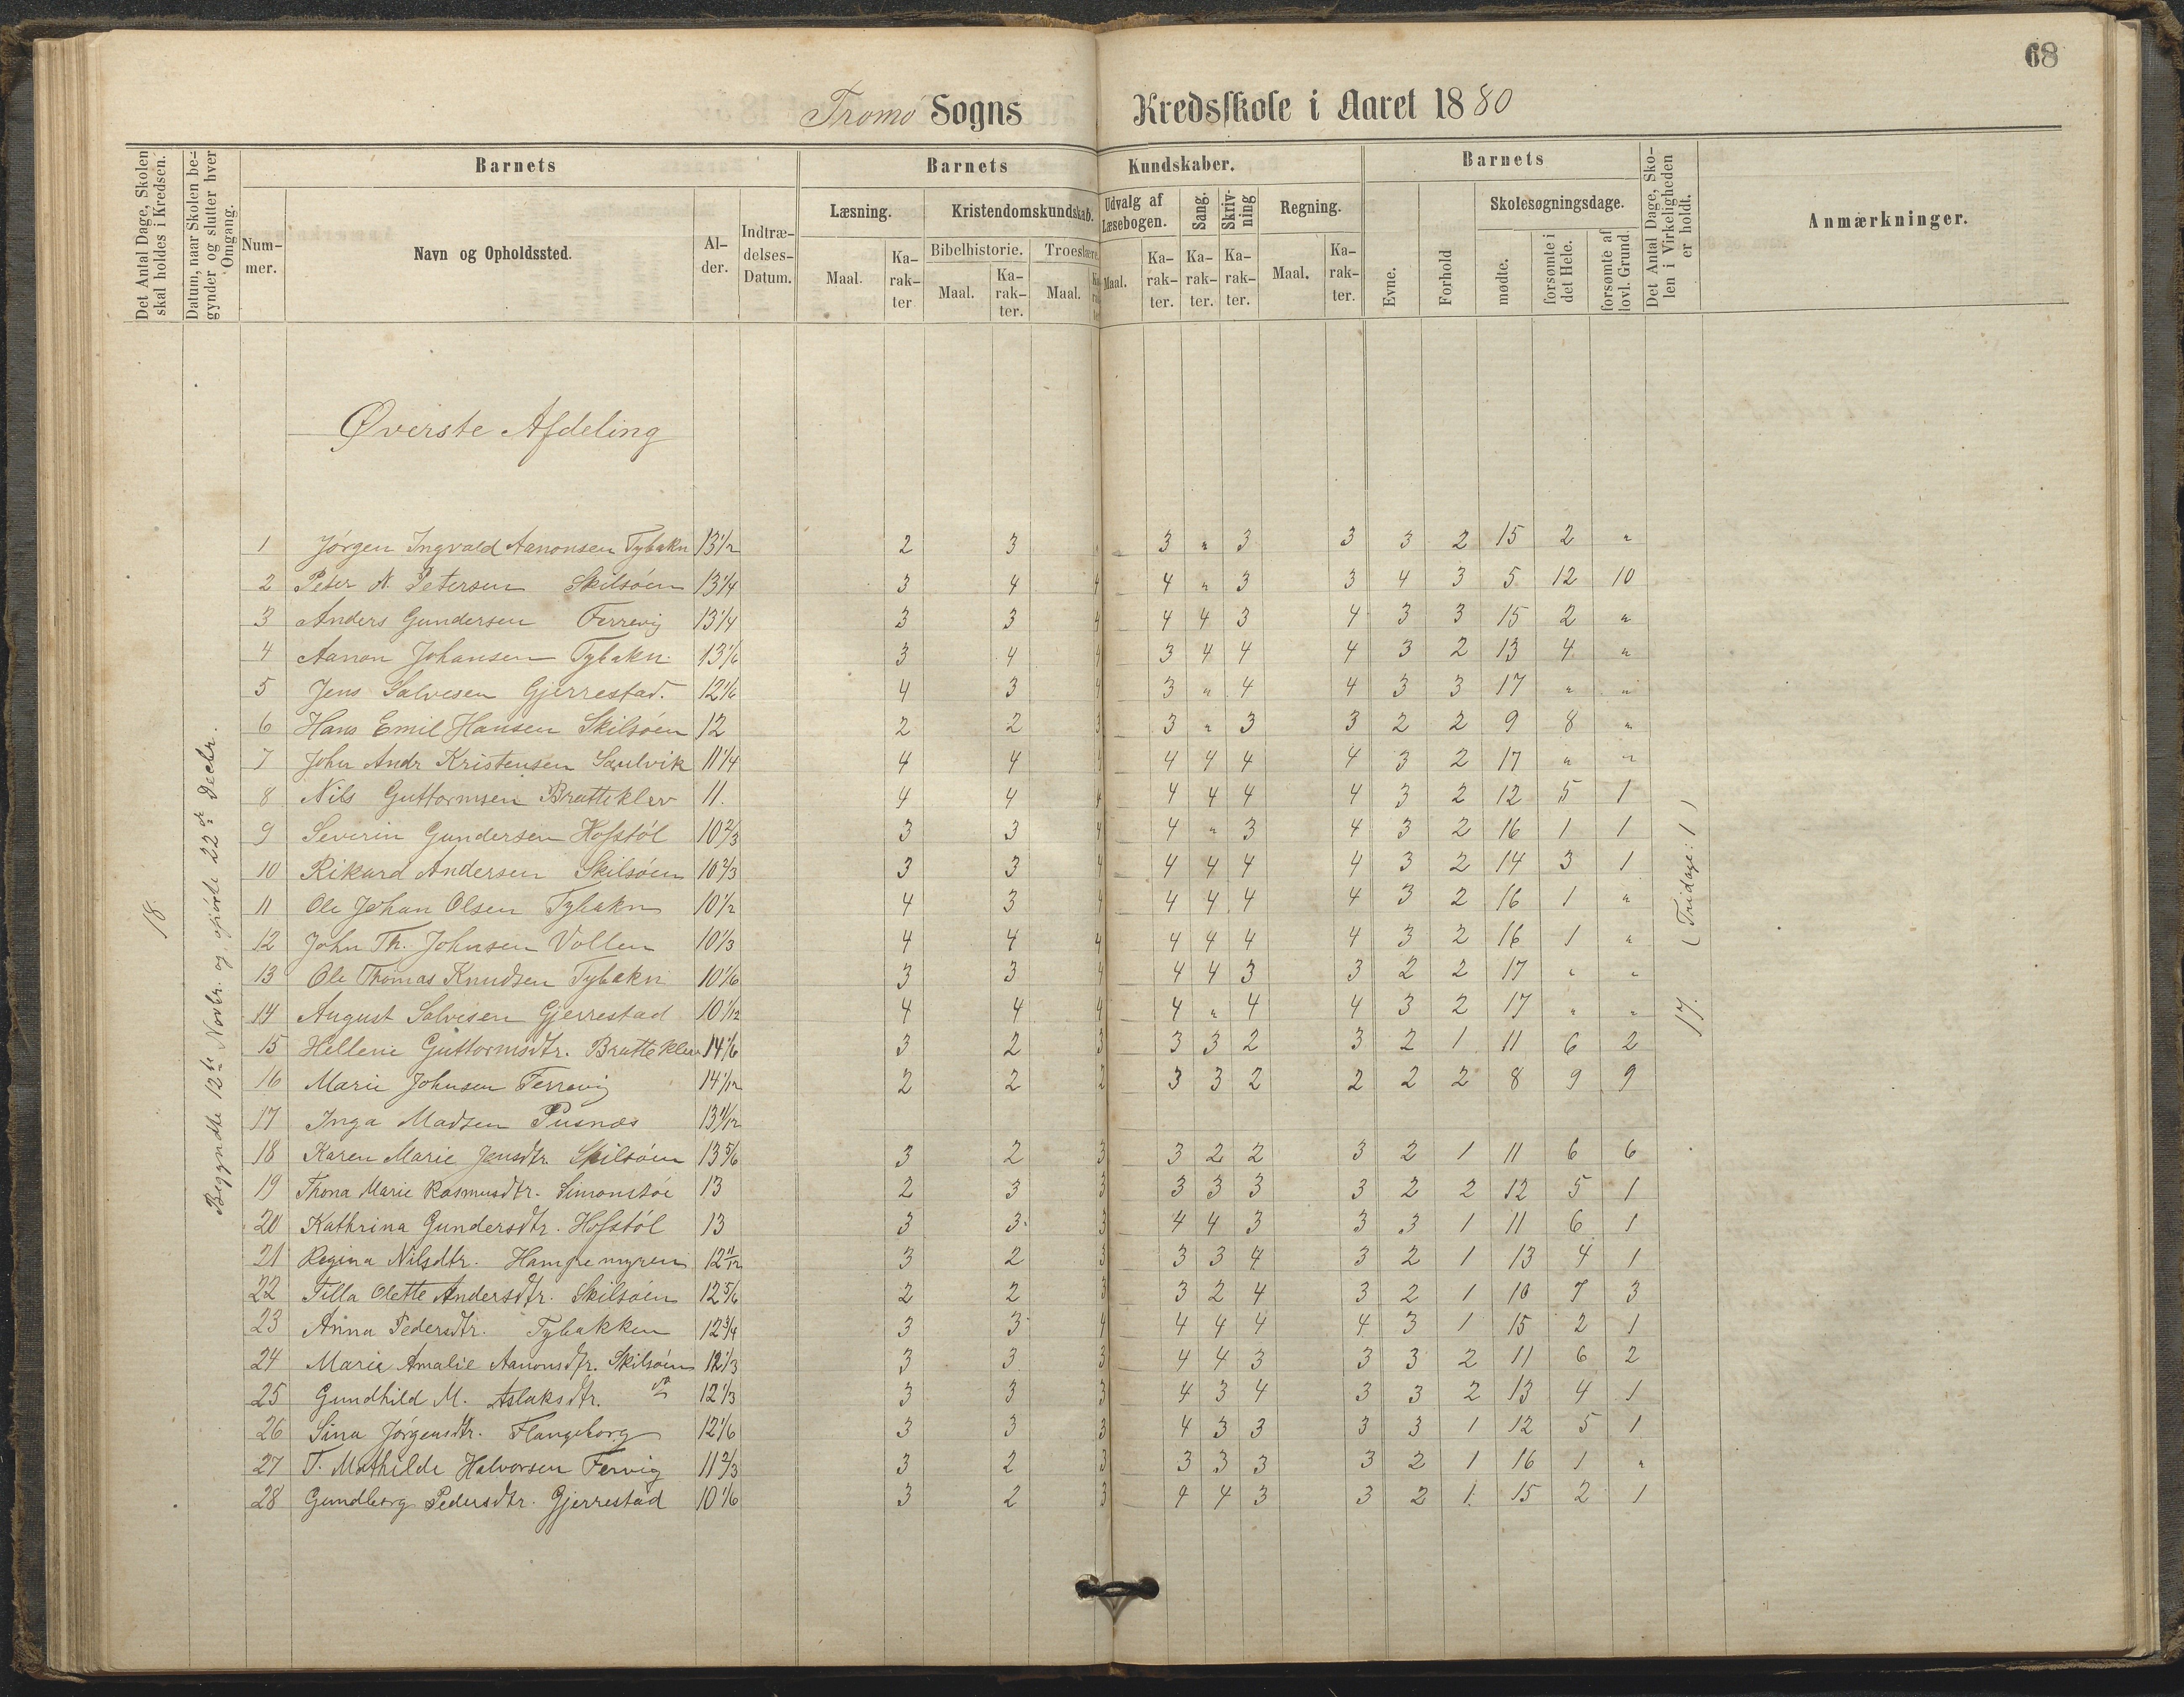 68
Tromø Sogns Kredsskole i Aaret 1880
Det Antal Dage, Skolen skal holdes i Kredsen.
Datum, naar Skolen begynder og slutter hver Omgang.
Barnets
Nummer.
Navn og Opholdssted.
Alder.
Indtrædelses-Datum.
Barnets Kundskaber.
Læsning.
Maal.
Karakter
Kristendomskundskab.
Bibelhistorie.
Maal.
Karakter.
Troeslære.
Maal.
Udvalg af Læsebogen.
Maal.
Karakter.
Sang.
Karakter.
Skrivning
Karakter.
Regning.
Maal.
Karakter.
Barnets
Evne.
Forhold
Skolesøgningsdage.
mødte.
forsømte i det Hele.
forsømte af lovl. Grund.
Det Antal Dage, Skolen i Virkeligheden er holdt.
Anmærkninger.
Øverste Afdeling
18.
Begyndte 12te Novbr. og ophørte 22de Decbr.
17. (Fridage: 1)
1 Jørgen Ingvald Aanonsen Tybakn 13 1/2 2 3 3 " 3 3 3 2 15 2 "
2 Peter N. Petersen Skilsøen 13 1/4 3 4 4 4 " 3 3 4 3 5 12 10
3 Anders Gundersen Ferrevig 13 1/4 3 3 4 4 4 3 4 3 3 15 2 "
4 Aanon Johansen Tybakn 13 1/6 3 4 4 3 4 4 4 3 2 13 4 "
5 Jens Salvesen Gjerrestad. 12 1/6 4 3 4 3 " 4 4 3 3 17 " "
6 Hans Emil Hansen Skilsøen 12 2 2 3 3 " 3 3 2 2 9 8 "
7 John Andr Kristensen Saulvik 11 1/4 4 4 4 4 4 4 4 3 2 17 " "
8 Nils Guttormsen Bratteklev 11. 4 4 4 4 4 4 4 3 2 12 5 1
9 Severin Gundersen Hofstøl 10 2/3 3 3 4 4 " 3 4 3 2 16 1 1
10 Rikard Andersen Skilsøen 10 2/3 3 3 4 4 4 4 4 3 2 14 3 1
11 Ole Johan Olsen Tybakn 10 1/2 4 3 4 4 4 4 4 3 2 16 1 "
12 John Th. Johnsen Vollen 10 1/3 4 4 4 4 4 4 4 3 2 16 1 "
13 Ole Thomas Knudsen Tybakn 10 1/6 3 3 4 4 4 3 3 2 2 17 " "
14 August Salvesen Gjerrestad 10 1/12 4 4 4 4 " 4 4 3 2 17 " "
15 Hellene Guttormsdtr. Bratteklev 14 1/6 3 2 3 3 3 2 3 2 1 11 6 2
16 Marie Johnsen Ferrevig 14 1/12 2 2 2 3 3 2 2 2 2 8 9 9
17 Inga Madsen Pusnæs 13 11/12
18 Karen Marie Jensdtr. Skilsøen 13 5/6 3 2 3 3 2 2 3 2 1 11 6 6
19 Thona Marie Rasmusdtr. Simonstøe 13 2 3 3 3 3 3 3 2 2 12 5 1
20 Kathrina Gundersdtr. Hofstøl 13 3 3 3 4 4 3 3 3 1 11 6 1
21 Regina Nilsdtr. Hampemyren 12 11/12 3 2 3 3 3 4 3 2 1 13 4 1
22 Tilla Olette Andersdtr. Skilsøen 12 5/6 2 2 3 3 2 4 3 2 1 10 7 3
23 Anna Pedersdtr. Tybakken 12 3/4 3 3 4 4 4 4 4 3 1 15 2 1
24 Marie Amalie Aanonsdtr. Skilsøen 12 1/3 3 3 3 4 4 3 3 3 2 11 6 2
25 Gundhild M. Aslaksdtr. do 12 1/3 3 3 3 4 3 4 3 3 2 13 4 1
26 Sina Jørgensdtr. Flangeborg 12 1/6 3 3 3 4 3 3 3 3 1 12 5 1
27 T. Mathilde Halvorsen Fervig 11 2/3 3 2 3 3 3 3 3 2 1 16 1 "
28 Gundborg Pedersdtr. Gjerrestad 10 1/6 3 2 3 4 4 3 3 2 1 15 2 1